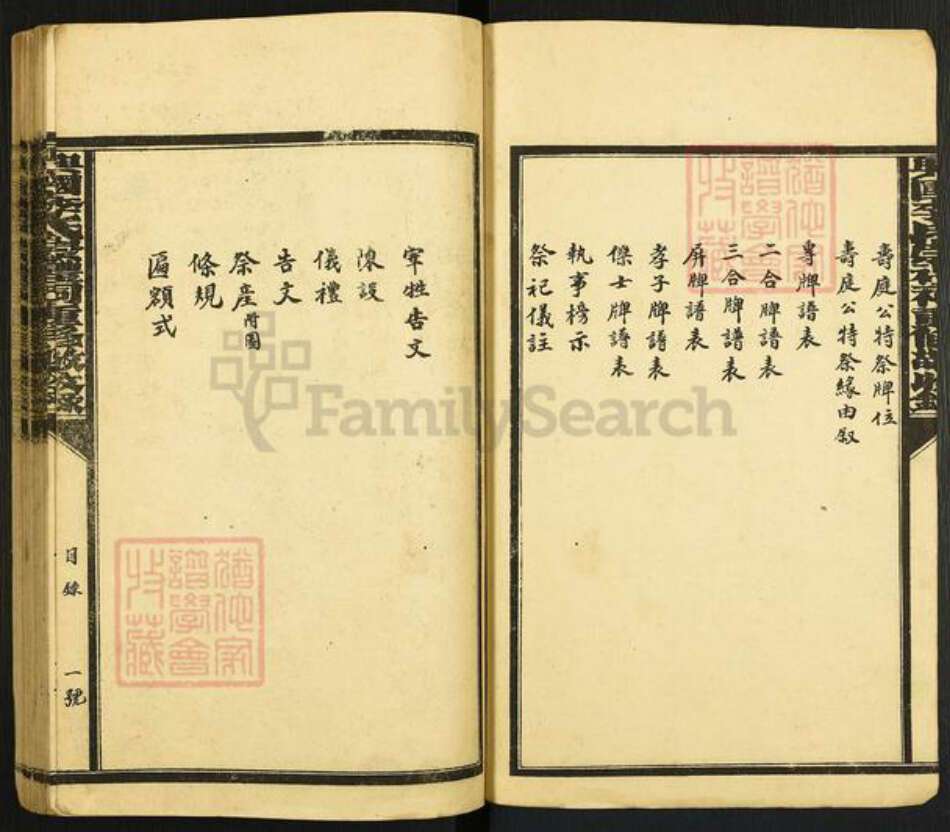 壽庭公特祭牌位
壽庭公特祭緣由叙
專牌譜表
二合牌譜表
三合牌譜表
屏牌譜表
孝子牌譜表
傑士牌譜表
執事榜示
祭祀儀註
宰牲告文
陳設
儀禮
告文
祭產附圖
條規
匾額式
目錄
一號
FamilySearch
譜學會
收藏